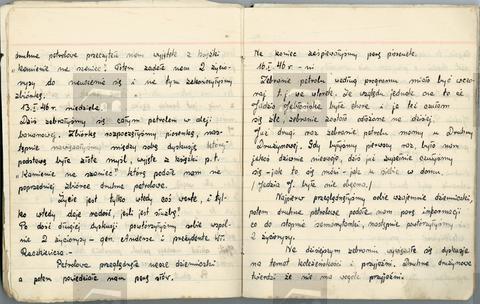 druhna petrolowa przeczyta nam wyjątek z książki
"Kamienie na szaniec". Potem zadała nam 2 życio-
rysy do nauczenia się i na tym zakończyłyśmy
zbiórkę.
13.I.46 r. niedziela
Dziś zebrałyśmy się całym patrolem w dej.
baonowej. Zbiórkę rozpoczęłyśmy piosenką, nas-
tępnie nawiązałyśmy między sobą dyskusję której
podstawą była złota myśl, wyjęta z książki p.t.
"Kamienie na szaniec" którą podała nam na
poprzedniej zbiórce druhna patrolowa.
Życie jest tylko wtedy coś warte, i tyl-
ko wtedy daje radość, jeśli jest służbą!
Po dość długiej dyskusji powtórzyłyśmy sobie wspól-
nie 2 życiorysy - gen. Andersa i prezydenta Wł.
Raczkiewicza. -
Patrolowa przeglądnęła nasze dzienniczki
a potem powiedziała nam parę
Na koniec zaśpiewałyśmy parę piosenek.
16.I.46 r. - 
Zebranie patrolu według programu miało być wczo-
raj t.j. we wtorek. Ze względu jednak na to że
Jadzia była chora i ja też czułam
się źle, zebranie zostało odłożone na dzisiaj.
Już drugi raz zebranie patrolu mamy u Druhny
Drużynowej. Gdy byłyśmy pierwszy raz, było nam
jakoś dziwnie nieswojo, dziś już zupełnie czułyśmy
się - jak to się mówi - jak u siebie w domu.
(Jadzia J. była nie obecna)
Najpierw przeglądnęłyśmy sobie wzajemnie dzienniczki,
potem druhna patrolowa podała nam parę informacji
co do stopnia samarytanki, następnie powtórzyłyśmy
2 życiorysy.
Na dzisiejszym zebraniu wywiązała się dyskusja
na temat koleżeństwa i przyjaźni. Druhna drużynowa
twierdzi że nie ma wogóle przyjaźni